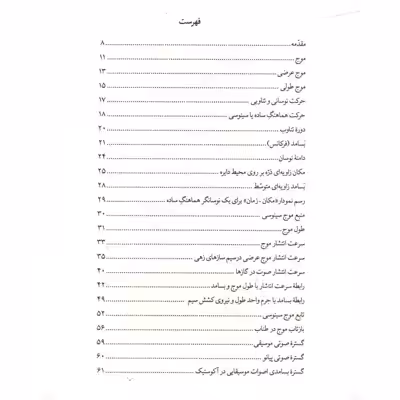 فهرست
مقدّمه ۸
موج ۱۱
موج عرضی ۱۳
موج طولی ۱۵
حرکت نوسانی و تناوبی ۱۷
حرکت هماهنگِ ساده یا سینوسی ۱۸
دورهٔ تناوب ۲۰
بَسامد (فرکانس) ۲۱
دامنهٔ نوسان ۲۴
مکان زاویه‌ای ذرّه بر روی محیط دایره ۲۵
بَسامد زاویه‌ای متوسّط ۲۸
رسم نمودار «مکان - زمان» برای یک نوسانگر هماهنگِ ساده ۲۹
منبع موج سینوسی ۳۰
طول موج ۳۱
سرعت انتشار موج ۳۳
سرعت انتشار موج عرضی درسیم سازهای زهی ۳۵
سرعت انتشار صوت در گازها ۴۰
رابطهٔ سرعت انتشار با طول موج و بسامد ۴۲
رابطهٔ بسامد با جرم واحد طول و نیروی کشش سیم ۴۹
تابع موج سینوسی ۵۲
بازتاب موج در طناب ۵۶
گسترهٔ صوتی موسیقی ۵۹
گسترهٔ صوتی پیانو ۶۰
گسترهٔ بسامدی اصوات موسیقایی در آکوستیک ۶۱